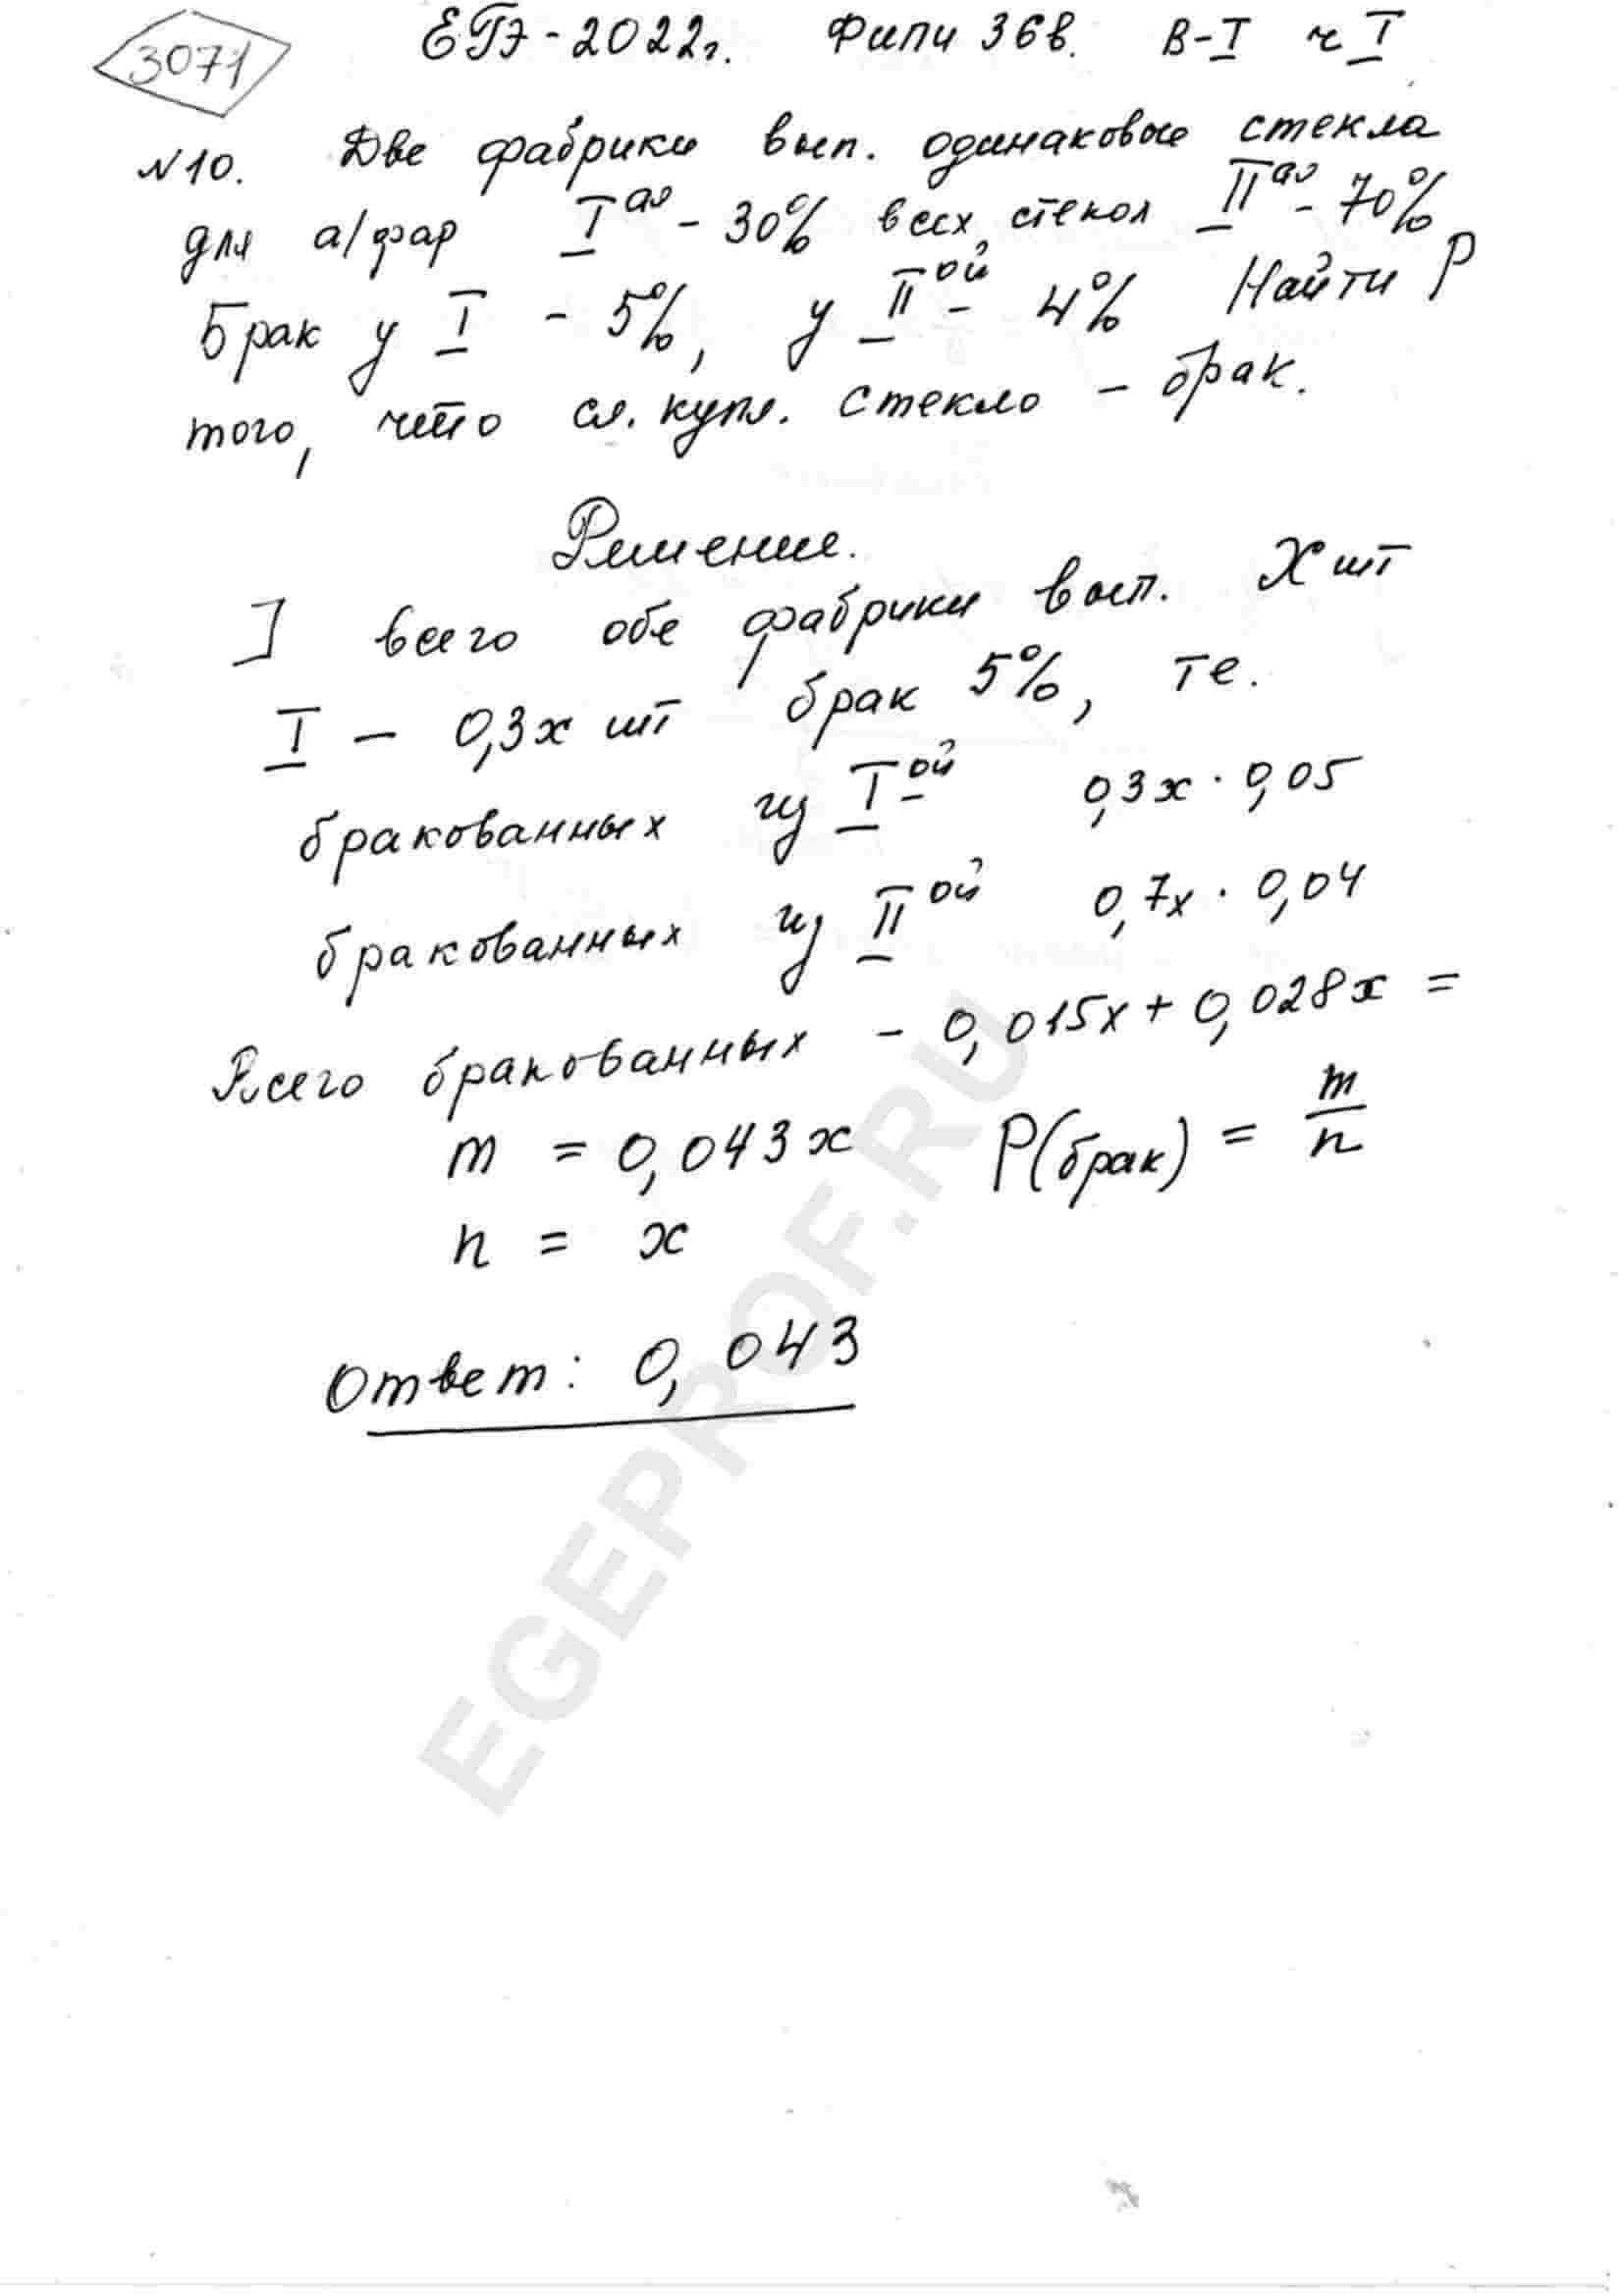 3071
ЕГЭ-2022г. Фипи 36в. В-I ч I
№10. Две фабрики вып. одинаковые стекла
для а/фар Iая - 30% всех стекол IIая - 70%
Брак у I - 5%, у IIой - 4% Найти P
того, что сл. купл. стекло - брак.
Решение.
] всего обе фабрики вып. X шт
I - 0,3x шт брак 5%, те.
бракованных из Iой 0,3x · 0,05
бракованных из IIой 0,7x · 0,04
Всего бракованных - 0,015x + 0,028x =
m = 0,043x P(брак) = m/n
n = x
Ответ: 0,043
EGEPROF.RU